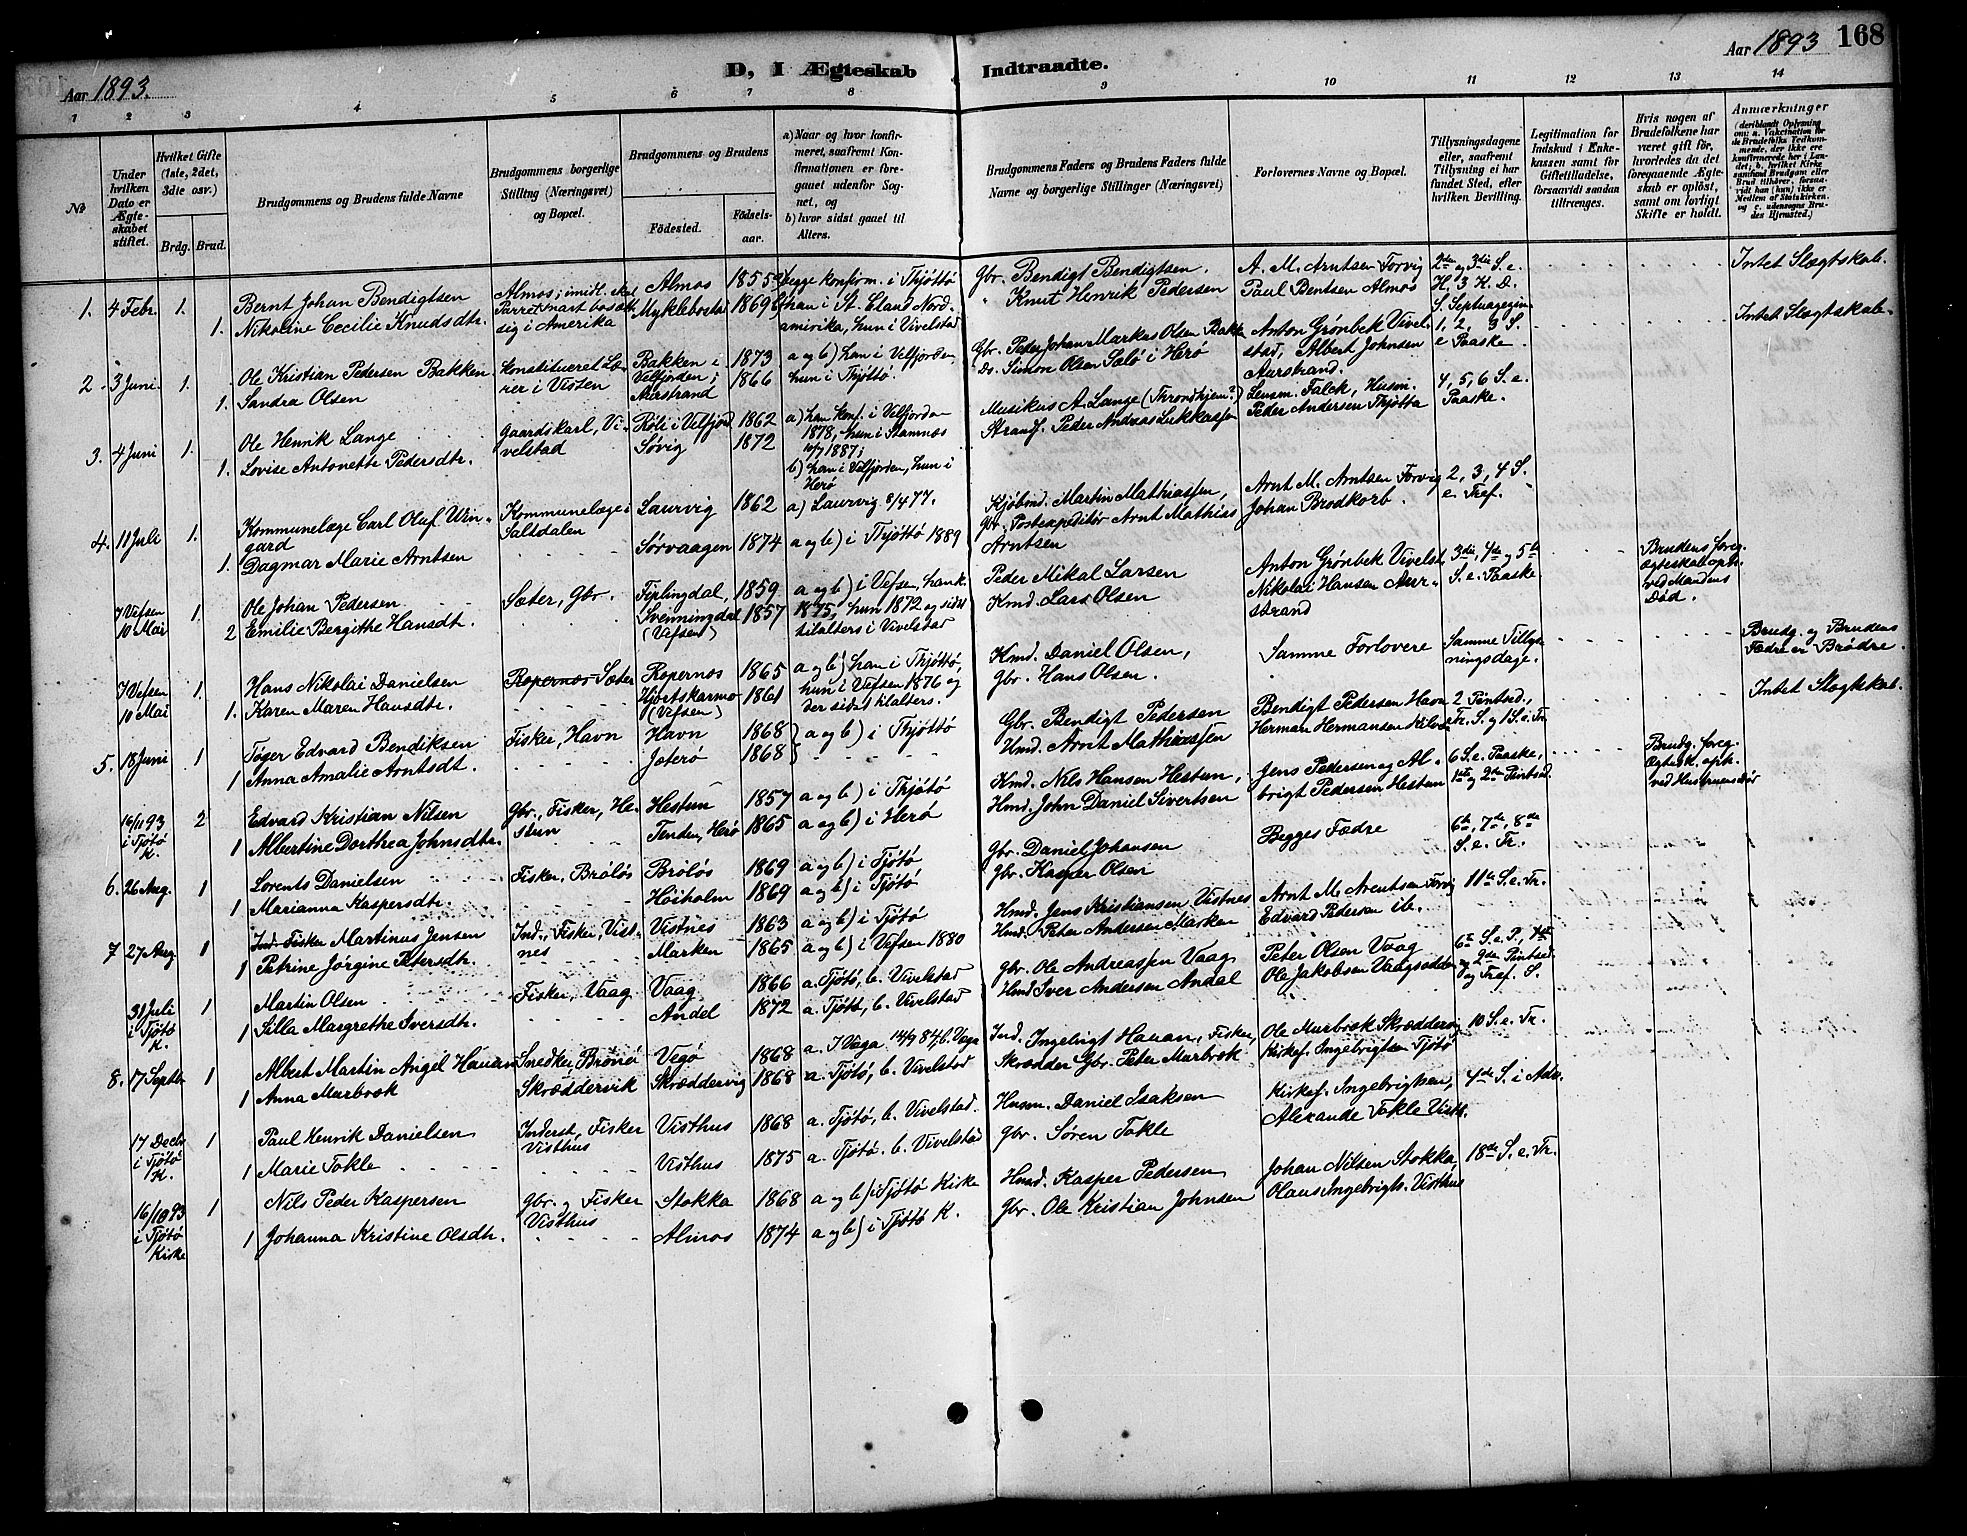 Aar 1893.
D, I Ægteskab Indtraadte.
Aar 1893 168
1 2 3 4 5 6 7 8 9 10 11 12 13 14
№
Under hvilken Dato er Ægteskabet stiftet.
Hvilket Gifte (1ste, 2det, 3die osv.)
Brdg. Brud.
Brudgommens og Brudens fulde Navne
Brudgommens borgerlige Stilling (Næringsvei) og Bopæl.
Brudgommens og Brudens
Födested. Födselsaar.
a) Naar og hvor konfirmeret, saafremt Konfirmationen er foregaaet udenfor Sognet, og
b) hvor sidst gaaet til Alters.
Brudgommens Faders og Brudens Faders fulde Navne og borgerlige Stillinger (Næringsvei)
Forlovernes Navne og Bopæl.
Tillysningsdagene eller, saafremt Tillysning ei har fundet Sted, efter hvilken Bevilling.
Legitimation for Indskud i Enkekassen samt for Giftetilladelse, forsaavidt saadan tiltrænges.
Hvis nogen af Brudefolkene har været gift för, hvorledes da det foregaaende Ægteskab er oplöst, samt om lovligt Skifte er holdt.
Anmærkninger
(deriblandt Oplysning om: a. Vakcination for de Brudefolks Vedkommende, der ikke ere konfirmerede her i Landet; b. hvilket Kirkesamfund Brudgom eller Brud tilhörer, forsaavidt han (hun) ikke er Medlem af Statskirken, og c. udensogns Brudes Hjemsted.)
1. 4 Febr. 1. Bernt Johan Bendigtsen Almos; imidl. skal Almos 1855 a) begge konfirm. i Thjøttø Gbr. Bendigt Bendigtsen. A. M. Arntsen Forvig 2de og 3die S. e. Intet Slægtskab.
1. Nikoline Cecilie Knudsdtr. Parret snart bosætte sig i Amerika Myklebostad 1869 b) han i St. Eland Nordamirika, hun i Vivelstad " Knut Henrik Pedersen Paul Bentsen Almos H. 3 K. D. S. Septuagesim
2. 3 Juni. 1. Ole Kristian Pedersen Bakken Konstitueret Lærer i Visten Bakken i Velfjorden; 1873 a og b) han i Velfjorden, Gbr. Peder Johan Markus Olsen Bakke Anton Grønbek Vivelstad, Albert Johnsen 1, 2, 3 S. e Paaske. Intet Slægtskab.
1. Sandra Olsen Aurstrand 1866 hun i Thjøttø. Do. Simon Olsen Salö i Herø Aurstrand.
3. 4 Juni 1. Ole Henrik Lange Gaardskarl, Vivelstad Röli i Velfjord 1862 a) han konf. i Velfjorden Musikus A. Lange (Throndhjem?) Lensm. Falck, Husm. 4, 5, 6 S. e.
1. Lovise Antonette Pedersdtr. Søvig 1872 1878, hun i Stamnæs 10/7 1887; b) han i Velfjorden, hun i Herø Strandf. Peder Andreas Lukkassen Peder Andersen Thjøtta Paaske.
4. 11 Juli 1. Kommunelæge Carl Oluf Wingard Kommunelæge i Saltdalen Laurvig 1862 a) Laurvig 8/4 77. Kjöbmd. Martin Mathiassen, Arnt M. Arntsen Forvig 2, 3, 4 S.
1. Dagmar Marie Arntsen Sørvaagen 1874 a og b) i Thjøttö 1889 Gbr. Postexpeditör Arnt Mathias Arntsen Johan Brodkorb. e. Tref.
7 Vefsen 10 Mai 1. Ole Johan Pedersen Sæter, Gbr. Fiplingdal, 1859 a og b) i Vefsen, han k. Peder Mikal Larsen Anton Grønbek Vivelst. 3die, 4de og 5te Brudens foreg.
2 Emilie Bergithe Hansdt. Svenningdal (Vefsen) 1857 1875, hun 1872 og sidst tilalters i Vivelstad Kmd. Lars Olsen Nikolai Hansen Aurstrand S. e. Paaske. Ægteskab oph. ved Mandens Död.
7 Vefsen 10 Mai 1. Hans Nikolai Danielsen Ropernos Sæter Ropernos 1865 a og b) han i Thjøttö, Kmd. Daniel Olsen, Samme Forlovere Samme Tillysningsdage. Brudg. og Brudens
1. Karen Maren Hansdtr. Hjortskarmo (Vefsen) 1861 hun i Vefsen 1876 og der sidst tilalters. Gbr. Hans Olsen. Fædre er Brödre.
5. 18 Juni 1 Töger Edvard Bendiksen Fisker, Havn Havn 1868 a og b) i Thjøttö Gbr. Bendigt Pedersen Bendigt Pedersen Havn 2 Pintsed., Intet Slægtskab.
1 Anna Amalie Arntsdt. Joterö 1868 Hmd. Arnt Mathiassen Herman Hermansen Tr. S. og 1 S. e. Tr.
16/11 93 i Tjötö K. 2 Edvard Kristian Nilsen Gbr., Fisker, Hestun Hestun 1857 a og b) i Thjötö Kmd. Nils Hansen Hestun, Jens Pedersen og Al- 6 S. e. Paaske, Brudg. foreg.
1 Albertine Dorthea Johnsdtr. Tenden, Herö 1865 a og b) i Herö Hmd. John Daniel Sivertsen brigt Pedersen Hestun 1ste og 2den Pintsed. Ægtesk. oph. ved Hustruens död
6. 26 Aug. 1 Lorents Danielsen Fisker, Brölös Brölös 1869 a og b) i Tjötö Gbr. Daniel Johansen Begges Fædre 6te, 7de, 8de
1 Marianna Kaspersdtr. Höiholm 1869 a og b) i Tjötö Gbr. Kasper Olsen S. e. Tr.
7 27 Aug 1 Ind. Fisker Martinus Jensen Ind., Fisker, Vistnes Vistnes 1863 a og b) i Tjötö Hmd. Jens Kristiansen Vistnes Arnt M. Arentsen Forvig 11te S. e. Tr.
1 Petrine Jörgine Petersdtr. Marken 1865 a og b) i Vefsen 1880 Hmd. Peter Andersen Marken Edvard Pedersen ib.
31 Juli i Tjötö K. 1 Martin Olsen Fisker, Vaag Vaag 1866 a. Tjötö, b. Vivelstad Gbr. Ole Andreassen Vaag Peter Olsen Vaag 6te S. e. P., 1ste
1 Silla Margrethe Iversdtr. Andal 1872 a. Tjött, b. Vivelstad Hmd Iver Andersen Andal Ole Jakobsen Vaagsodden og 2den Pintsed. og Tref. S.
8. 17 Septbr 1 Albert Martin Angel Hauan Snedker Brönö Vegö 1868 a. I Vega 14/9 84, b. Vega Ind. Ingebrigt Hauan, Fisker, Ole Murbræk Skræddervig 10 S. e. Tr.
1 Anna Murbræk Skræddervik Skræddervig 1868 a. Tjötö, b. Vivelstad Skrædder Gbr. Peter Murbræk Kirkesg. Ingebrigtsen Tjötö
17 Decbr i Tjötö K. 1 Paul Henrik Danielsen Inderst, Fisker Visthus Visthus 1868 a. Tjötö, b. Vivelstad. Husm. Daniel Isaksen Kirkesg. Ingebrigtsen, 4de S. i Adv.
1 Marie Tokle Visthus 1875 a. Tjötö. b. Vivelstad Gbr. Sören Tokle Alexander Tokle Visth.
16/10 93 i Tjötö Kirke 1 Nils Peder Kaspersen Gbr. og Fisker Visthus Stokka 1868 a og b) i Tjötö Kirke Hmd. Kasper Pedersen Johan Nilsen Stokka, 18de S. e. Tr.
1 Johanna Kristine Olsdtr. Almos 1874 a og b) i Tjötö K. Gbr. Ole Kristian Johnsen Olaus Ingebrigts. Visthus